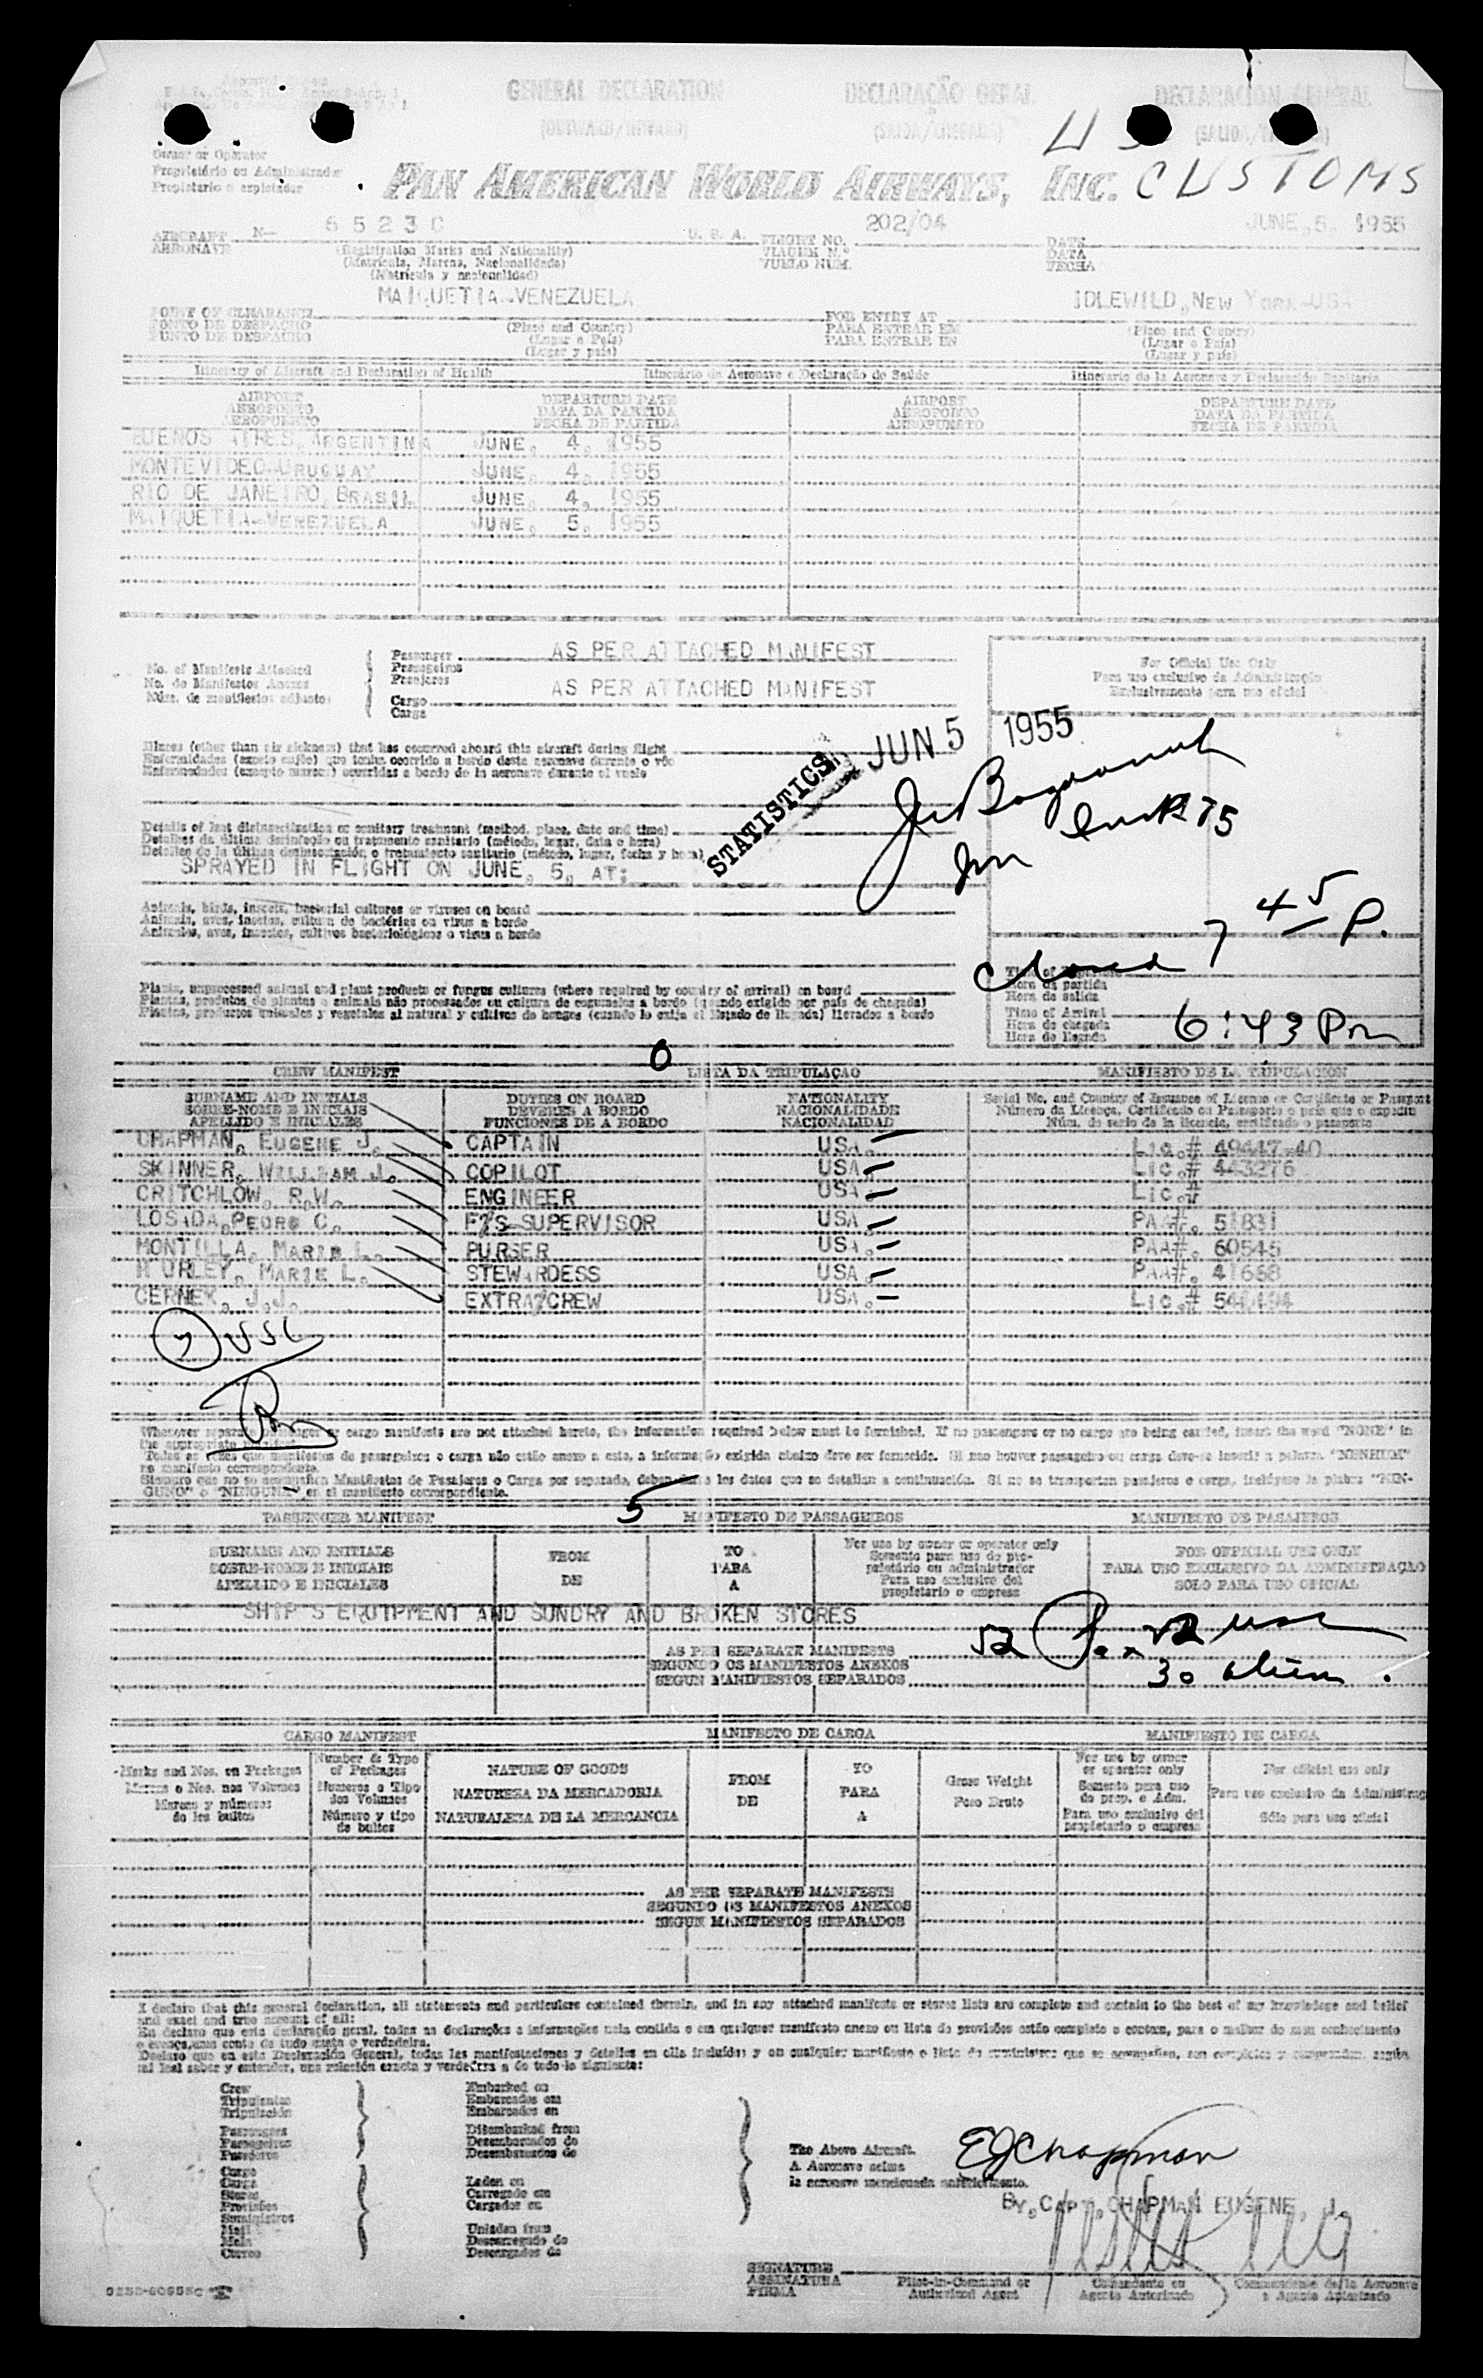 GENERAL DECLARATION DECLARAÇÃO GERAL DECLARACION GENERAL
(OUTWARD/INWARD) (SAIDA/ENTRADA)
U S CUSTOMS
Owner or Operator
Proprietário ou Administrador
Propietario o explotador
PAN AMERICAN WORLD AIRWAYS, INC.
AIRCRAFT N- 6523C U. S. A. FLIGHT NO. 202/04 DATE JUNE. 5. 1955
AERONAVE (Registration Marks and Nationality) VIAGEM N.º DATA
(Matricula, Marcas, Nacionalidade) VUELO NUM. FECHA
(Matricula y nacionalidad)
MAIQUETIA-VENEZUELA IDLEWILD, NEW YORK-USA
POINT OF CLEARANCE FOR ENTRY AT
PONTO DE DESPACHO (Place and Country) PARA ENTRAR EM (Place and Country)
PUNTO DE DESPACHO (Lugar e País) PARA ENTRAR EN (Lugar e País)
(Lugar y país) (Lugar y país)
Itinerary of Aircraft and Declaration of Health Itinerário da Aeronave e Declaração de Saúde Itinerario de la Aeronave y Declaración Sanitaria
AIRPORT DEPARTURE DATE AIRPORT DEPARTURE DATE
AEROPORTO DATA DA PARTIDA AEROPORTO DATA DA PARTIDA
AEROPUERTO FECHA DE PARTIDA AEROPUERTO FECHA DE PARTIDA
BUENOS AIRES, ARGENTINA JUNE. 4. 1955
MONTEVIDEO-URUGUAY JUNE. 4. 1955
RIO DE JANEIRO, BRASIL JUNE. 4. 1955
MAIQUETIA-VENEZUELA JUNE. 5. 1955
Passenger AS PER ATTACHED MANIFEST
No. of Manifests Attached Passageiros
No. de Manifestos Anexos Pasajeros
Núm. de manifiestos adjuntos Cargo AS PER ATTACHED MANIFEST
Carga
For Official Use Only
Para uso exclusivo da Administração
Exclusivamente para uso oficial
Illness (other than air sickness) that has occurred aboard this aircraft during flight
Enfermidades (exceto enjôo) que tenha ocorrido a bordo desta aeronave durante o vôo
Enfermedades (excepto mareos) ocurridas a bordo de la aeronave durante el vuelo
STATISTICS JUN 5 1955
Details of last disinsectization or sanitary treatment (method, place, date and time)
Detalhes da última desinfeção ou tratamento sanitario (método, lugar, data e hora)
Detalles de la última desinsectación o tratamiento sanitario (método, lugar, fecha y hora)
SPRAYED IN FLIGHT ON JUNE. 5. AT:
Animals, birds, insects, bacterial cultures or viruses on board
Animais, aves, insetos, cultura de bactérias ou virus a bordo
Animales, aves, insectos, cultivos bacteriológicos o virus a bordo
Closed 7 45 P.
Time of Departure
Hora da partida
Hora de salida
Plants, unprocessed animal and plant products or fungus cultures (where required by country of arrival) on board
Plantas, produtos de plantas e animais não processados ou cultura de cogumelos a bordo (quando exigido por país de chegada)
Plantas, productos animales y vegetales al natural y cultivos de hongos (cuando lo exija el Estado de llegada) llevados a bordo
Time of Arrival 6:43 Pm
Hora da chegada
Hora de llegada
0
CREW MANIFEST LISTA DA TRIPULAÇAO MANIFIESTO DE LA TRIPULACION
SURNAME AND INITIALS DUTIES ON BOARD NATIONALITY Serial No. and Country of Issuance of License or Certificate or Passport
SOBRE-NOME E INICIAIS DEVERES A BORDO NACIONALIDADE Número da Licença, Certificado ou Passaporte e pais que o expediu
APELLIDO E INICIALES FUNCIONES DE A BORDO NACIONALIDAD Núm. de serie de la licencia, certificado o pasaporte
CHAPMAN, EUGENE J. CAPTAIN USA. Lic.# 49447-40
SKINNER, WILLIAM J. COPILOT USA. Lic.# 443276
CRITCHLOW, R.W. ENGINEER USA. Lic.#
LOSADA, PEDRO C. F/S SUPERVISOR USA. PAA#. 51831
MONTILLA, MARIE L. PURSER USA. PAA#. 60546
HURLEY, MARIE L. STEWARDESS USA. PAA#. 41668
CERNEK, J.J. EXTRA/CREW USA. Lic.#
7 USC
Whenever separate passenger or cargo manifests are not attached hereto, the information required below must be furnished. If no passengers or no cargo are being carried, insert the word "NONE" in
the appropriate manifest.
Todas as vezes que manifestos de passageiros e carga não estão anexo a esta, a informação exigida abaixo deve ser fornecida. Si nao houver passageiro ou carga deve-se inserir a palavra "NENHUM"
no manifesto correspondente.
Siempre que no se acompañen Manifiestos de Pasajeros o Carga por separado, deben darse los datos que se detallan a continuación. Si no se transportan pasajeros o carga, inclúyase la palabra "NIN-
GUNO" o "NINGUNA" en el manifiesto correspondiente.
5
PASSENGER MANIFEST MANIFESTO DE PASSAGEIROS MANIFIESTO DE PASAJEROS
SURNAME AND INITIALS FROM TO For use by owner or operator only FOR OFFICIAL USE ONLY
SOBRE-NOME E INICIAIS DE PARA Somente para uso do pro- PARA USO EXCLUSIVO DA ADMINISTRAÇAO
APELLIDO E INICIALES A prietário ou administrador SOLO PARA USO OFICIAL
Para uso exclusivo del
propietario o empresa
SHIP'S EQUIPMENT AND SUNDRY AND BROKEN STORES
AS PER SEPARATE MANIFESTS 52 Pax 22 usc
SEGUNDO OS MANIFESTOS ANEXOS 30 alien.
SEGUN MANIFIESTOS SEPARADOS
CARGO MANIFEST MANIFESTO DE CARGA MANIFIESTO DE CARGA
Marks and Nos. on Packages Number & Type of Packages NATURE OF GOODS FROM TO Gross Weight For use by owner or operator only For official use only
Marcas e Nos. nos Volumes Numeros e Tipo dos Volumes NATUREZA DA MERCADORIA DE PARA Peso Bruto Somente para uso do prop. e Adm. Para uso exclusivo da Administraç
Marcas y números de los bultos Número y tipo de bultos NATURALEZA DE LA MERCANCIA A Para uso exclusivo del propietario o empresa Sólo para uso oficial
AS PER SEPARATE MANIFESTS
SEGUNDO OS MANIFESTOS ANEXOS
SEGUN MANIFIESTOS SEPARADOS
I declare that this general declaration, all statements and particulars contained therein, and in any attached manifests or stores lists are complete and contain to the best of my knowledge and belief
and exact and true account of all:
Eu declaro que esta declaração geral, todas as declarações e informações nela contida e em qualquer manifesto anexo ou lista de provisões estão completo e contem, para o melhor do meu conhecimento
e crença, uma conta de tudo exata e verdadeira.
Declaro que en esta Declaración General, todas las manifestaciones y detalles en ella incluídos y en cualquier manifiesto o lista de suministros que se acompañan, son completos y comprenden, según
mi leal saber y entender, una relación exacta y verdadera a de todo lo siguiente:
Crew Embarked on
Tripulantes Embarcados em
Tripulación Embarcados en
Passengers Disembarked from
Passageiros Desembarcados de
Pasajeros Desembarcados de
Cargo
Carga Laden on
Stores Carregado em
Provisões Cargados en
Suministros
Mail Unladen from
Mala Descarregado de
Correo Descargados de
The Above Aircraft.
A Aeronave acima
la aeronave mencionada anteriormente.
EJChapman
BY. CAPT. CHAPMAN EUGENE. J.
SIGNATURE
ASSINATURA Pilot-in-Command or Comandante ou Comandante de la Aeronave
FIRMA Authorized Agent Agente Autorizado o Agente Autorizado